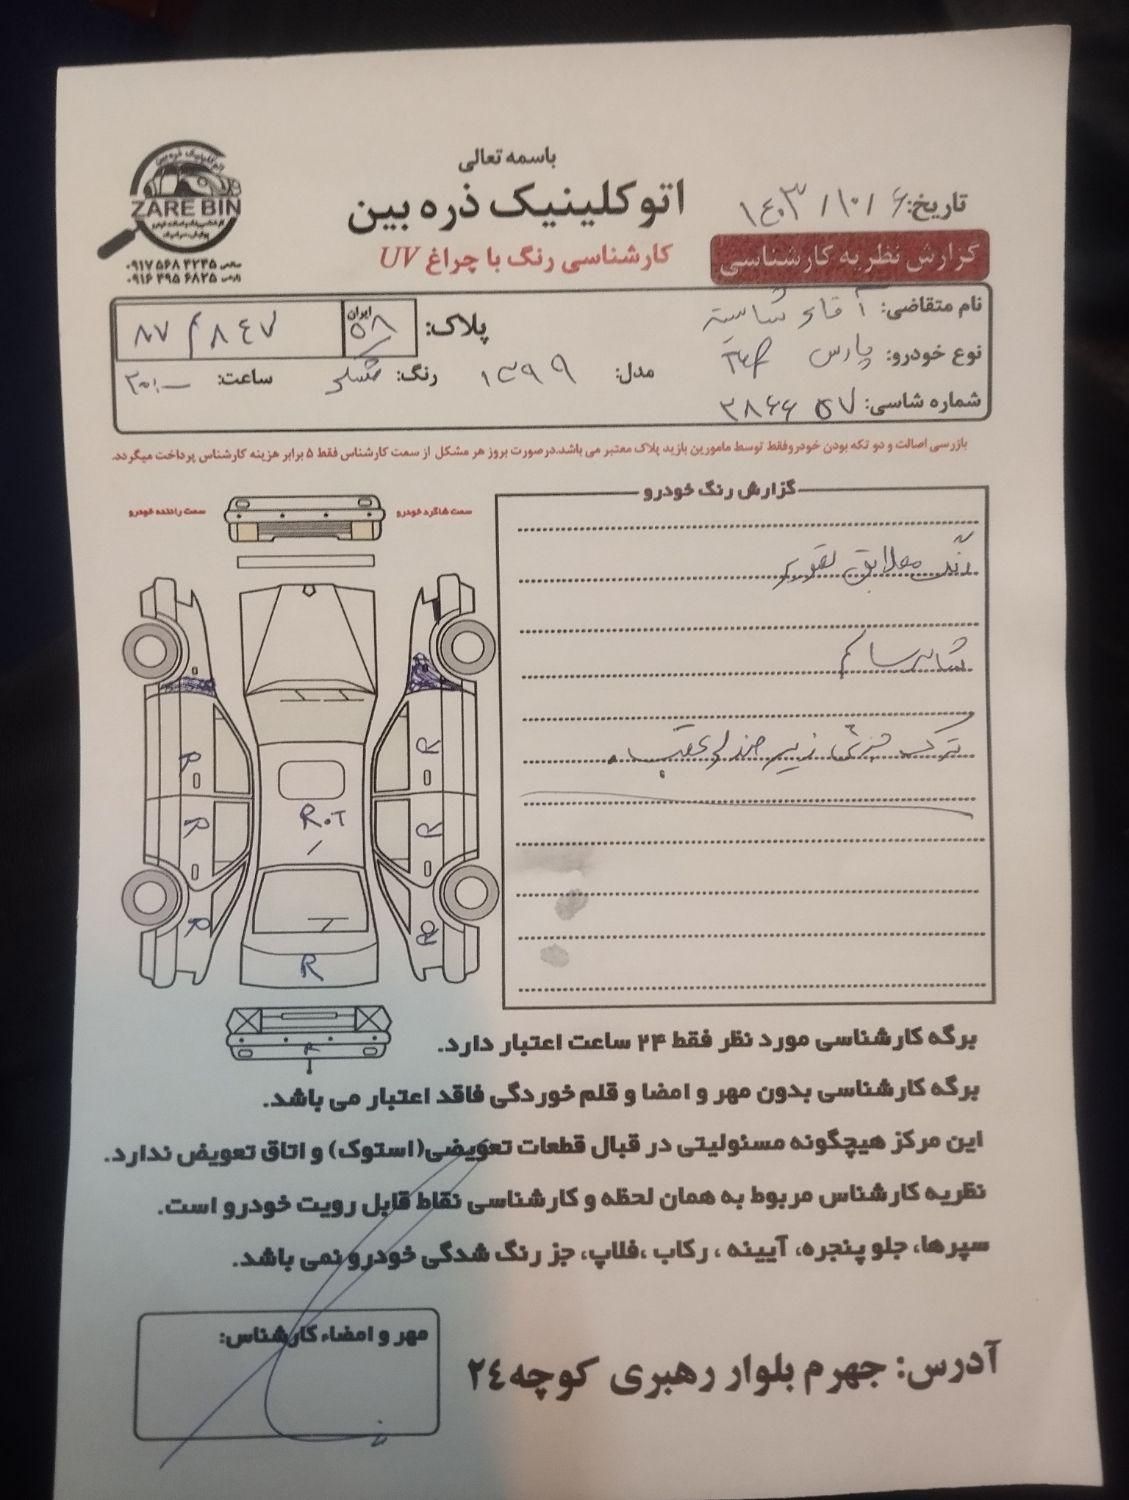 باسمه تعالی
اتوکلینیک ذره بین
کارشناسی رنگ با چراغ UV
ZARE BIN
۰۹۱۷ ۵۶۸ ۴۲۴۵
۰۹۱۶ ۴۹۵ ۶۸۲۵
تاریخ: ۱۴۰۳/۱۰/۶
گزارش نظریه کارشناسی
نام متقاضی: آقای شایسته
پلاک: ایران ۵۸ ۸۴۷ م ۸۷
نوع خودرو: پارس
مدل: ۱۳۹۹ رنگ: مشکی ساعت: ۲۰:۰۰
شماره شاسی: ۲۸۶۶۵۷
بازرسی اصالت و دو تکه بودن خودرو فقط توسط مامورین بازید پلاک معتبر می باشد.درصورت بروز هر مشکل از سمت کارشناس فقط ۵ برابر هزینه کارشناس پرداخت میگردد.
سمت راننده خودرو
سمت شاگرد خودرو
گزارش رنگ خودرو
رنگ مطابق تصویر
شاسی سالم
ترک جزئی زیر صندلی عقب.
R
R
R
R
R
R
R.T
R
برگه کارشناسی مورد نظر فقط ۲۴ ساعت اعتبار دارد.
برگه کارشناسی بدون مهر و امضا و قلم خوردگی فاقد اعتبار می باشد.
این مرکز هیچگونه مسئولیتی در قبال قطعات تعویضی(استوک) و اتاق تعویض ندارد.
نظریه کارشناس مربوط به همان لحظه و کارشناسی نقاط قابل رویت خودرو است.
سپرها، جلو پنجره، آیینه ، رکاب ،فلاپ، جز رنگ شدگی خودرو نمی باشد.
مهر و امضاء کارشناس:
آدرس: جهرم بلوار رهبری کوچه ۲۴